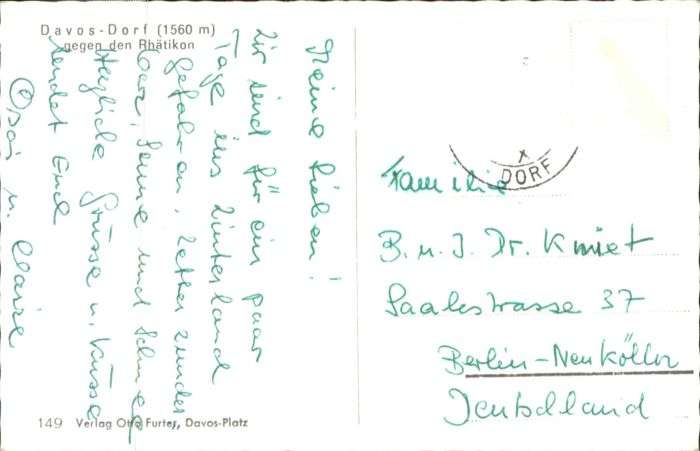 Davos-Dorf (1560 m)
gegen den Rhätikon
Meine Lieben!
Wir sind für ein paar
Tage ins Winterland
gefahren. Wetter wunder
bar, Sonne und Schnee
Herzliche Grüsse u. Küsse
sendet Euch
u. Claire
149 Verlag Otto Furter, Davos-Platz
DORF
Familie
B. u. J. Dr. Kmiet
Saalestrasse 37
Berlin-Neukölln
Deutschland